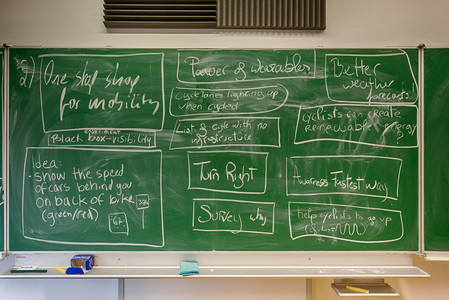 One stop shop
for mobility
Black box-visibility
idea:
- Show the speed
of cars behind you
on back of bike
(green/red)
Power of wearables
Cyclelanes lighting up
when cycled
List & cycle with no
infrastructure
Turn Right
Survey why
Better
weather
forecast
cyclists can create
renewable energy?
Awareness Fastest way
Help cyclists to go up